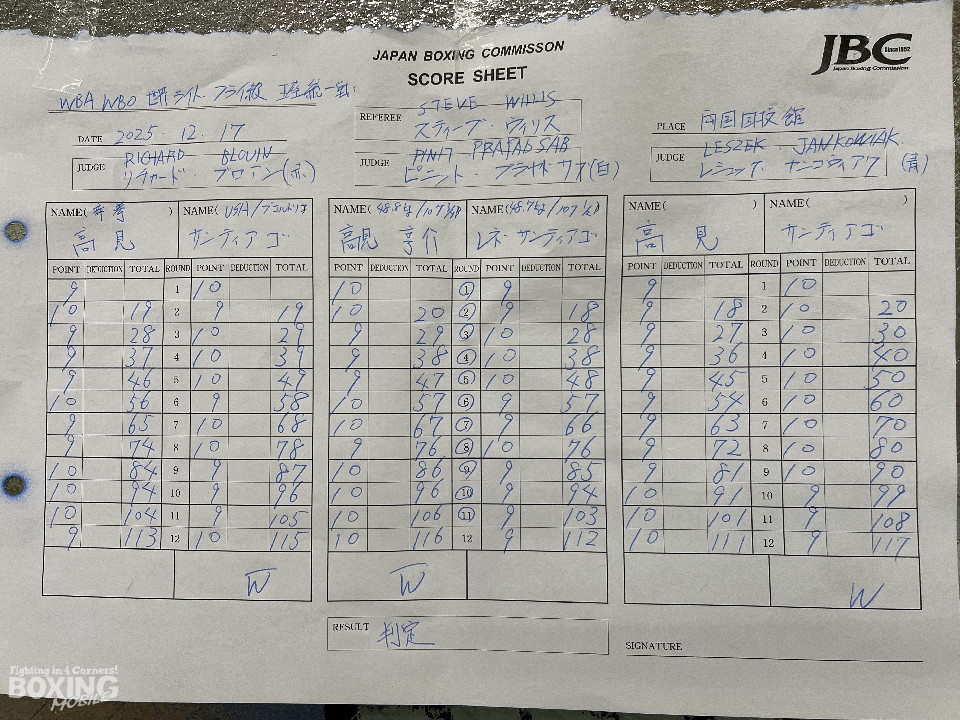 JAPAN BOXING COMMISSON
SCORE SHEET
JBC Since1952
Japan Boxing Commission
WBA WBO 世界ライト・フライ級 王座統一戦
DATE 2025.12.17
REFEREE STEVE WILLIS
スティーブ・ウィリス
PLACE 両国国技館
JUDGE RICHARD BLOUIN
リチャード・ブロアン(赤)
JUDGE PINIT PRAYADSAB
ピニット・プラヤドサブ(白)
JUDGE LESZEK JANKOWIAK
レシェック・ヤンコヴィアク(青)
NAME(帝拳) NAME(USA/プエルトリコ) NAME(48.8kg/107 1/2) NAME(48.7kg/107 1/4) NAME( ) NAME( )
高見 サンティアゴ 高見 亨介 レネ・サンティアゴ 高見 サンティアゴ
POINT DEDUCTION TOTAL ROUND POINT DEDUCTION TOTAL POINT DEDUCTION TOTAL ROUND POINT DEDUCTION TOTAL POINT DEDUCTION TOTAL ROUND POINT DEDUCTION TOTAL
9 1 10 10 1 9 9 1 10
10 19 2 9 19 10 20 2 9 18 9 18 2 10 20
9 28 3 10 29 9 29 3 10 28 9 27 3 10 30
9 37 4 10 39 9 38 4 10 38 9 36 4 10 40
9 46 5 10 49 9 47 5 10 48 9 45 5 10 50
10 56 6 9 58 10 57 6 9 57 9 54 6 10 60
9 65 7 10 68 10 67 7 9 66 9 63 7 10 70
9 74 8 10 78 9 76 8 10 76 9 72 8 10 80
10 84 9 9 87 10 86 9 9 85 9 81 9 10 90
10 94 10 9 96 10 96 10 9 94 10 91 10 9 99
10 104 11 9 105 10 106 11 9 103 10 101 11 9 108
9 113 12 10 115 10 116 12 9 112 10 111 12 9 117
W W W
RESULT 判定
SIGNATURE
Fighting in 4 Corners!
BOXING
MOBILE